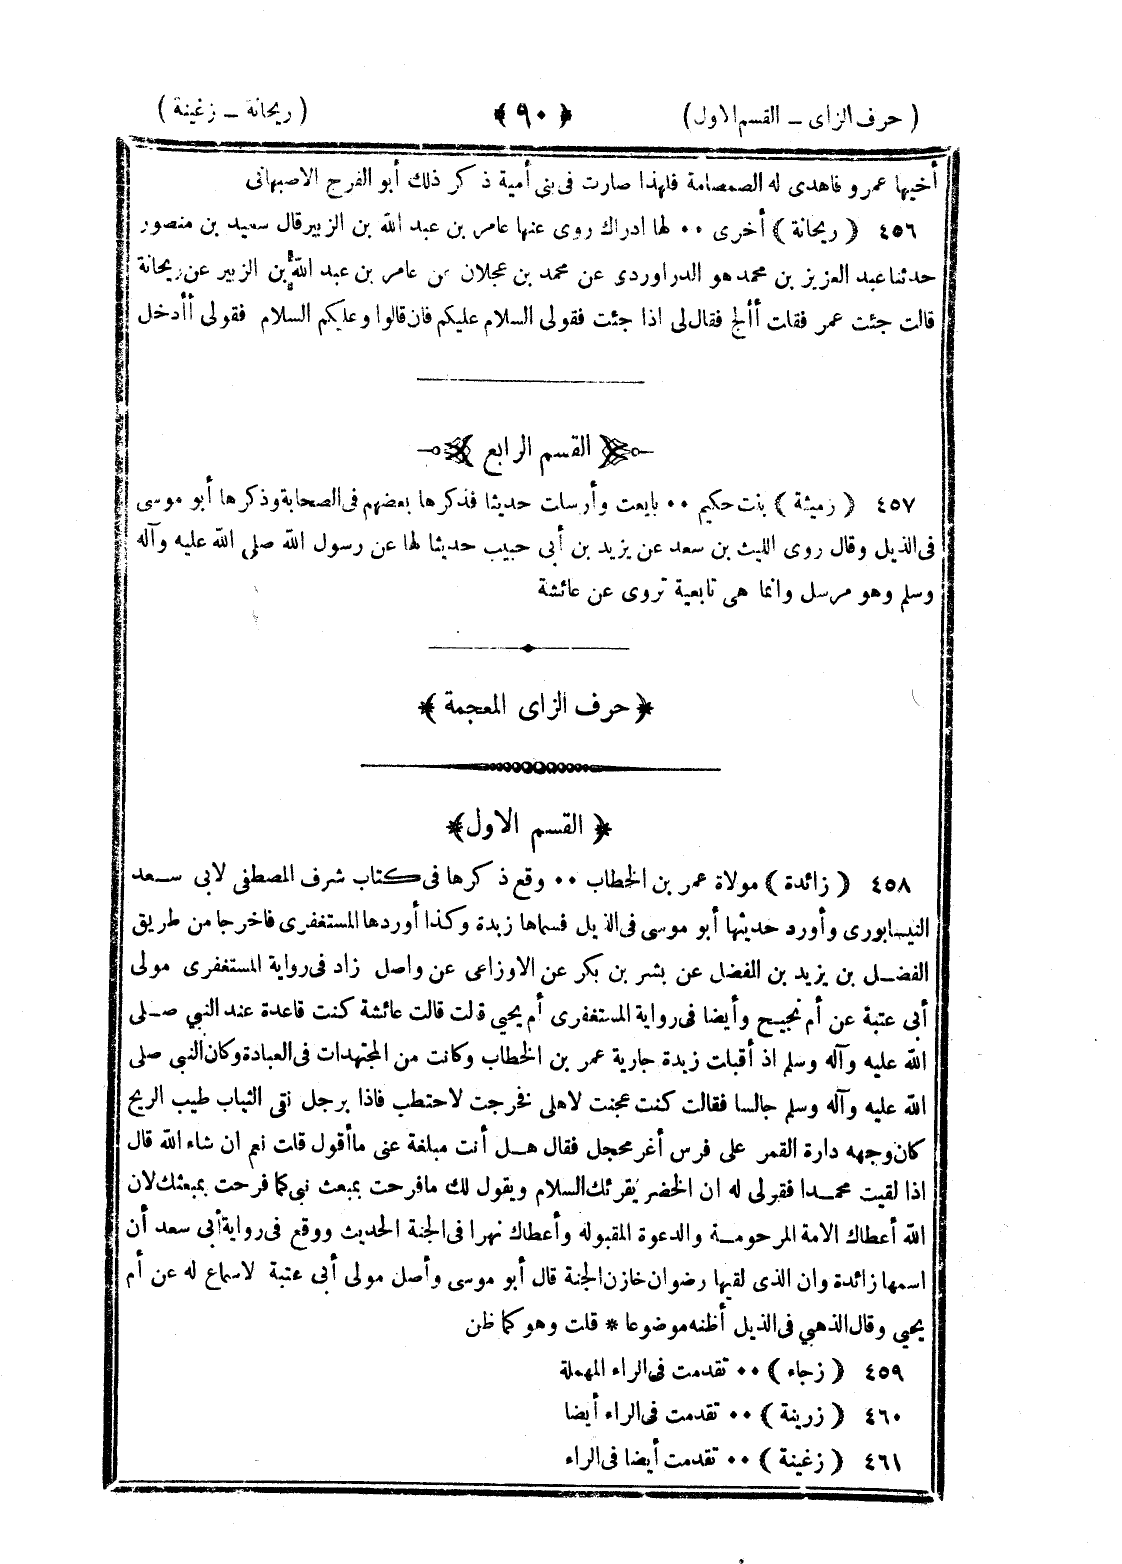 ( حرف الزاى – القسم الاول ) ﴿ ٩٠ ﴾ ( ريحانة – زغينة )
أخيها عمرو فاهدى له الصمصامة فلهذا صارت فى بنى أمية ذكر ذلك أبو الفرج الاصبهانى
٤٥٦ ( ريحانة ) أخرى ٠٠ لها ادراك روى عنها عامر بن عبد الله بن الزبير قال سعيد بن منصور
حدثنا عبد العزيز بن محمد هو الدراوردى عن محمد بن عجلان عن عامر بن عبد الله بن الزبير عن ريحانة
قالت جئت عمر فقلت أألج فقال لى اذا جئت فقولى السلام عليكم فان قالوا وعليكم السلام فقولى أأدخل
القسم الرابع
٤٥٧ ( رميثة ) بنت حكيم ٠٠ بايعت وأرسلت حديثا فذكرها بعضهم فى الصحابة وذكرها أبو موسى
فى الذيل وقال روى الليث بن سعد عن يزيد بن أبى حبيب حديثا لها عن رسول الله صلى الله عليه وآله
وسلم وهو مرسل وانما هى تابعية تروى عن عائشة
﴿ حرف الزاى المعجمة ﴾
﴿ القسم الاول ﴾
٤٥٨ ( زائدة ) مولاة عمر بن الخطاب ٠٠ وقع ذكرها فى كتاب شرف المصطفى لابى سعد
النيسابورى وأورد حديثها أبو موسى فى الذيل فسماها زبدة وكذا أوردها المستغفرى فاخرجا من طريق
الفضل بن يزيد بن الفضل عن بشر بن بكر عن الاوزاعى عن واصل زاد فى رواية المستغفرى مولى
أبى عتبة عن أم نجيح وأيضا فى رواية المستغفرى أم يحيى قالت قالت عائشة كنت قاعدة عند النبي صلى
الله عليه وآله وسلم اذ أقبلت زبدة جارية عمر بن الخطاب وكانت من المجتهدات فى العبادة وكان النبى صلى
الله عليه وآله وسلم جالسا فقالت كنت عجنت لاهلى فخرجت لاحتطب فاذا برجل نقى الثياب طيب الريح
كان وجهه دارة القمر على فرس أغر محجل فقال هل أنت مبلغة عنى ماأقول قلت نعم ان شاء الله قال
اذا لقيت محمدا فقولى له ان الخضر يقرئك السلام ويقول لك مافرحت بمبعث نبى كما فرحت بمبعثك لان
الله أعطاك الامة المرحومة والدعوة المقبوله وأعطاك نهرا فى الجنة الحديث ووقع فى رواية أبى سعد أن
اسمها زائدة وان الذى لقيها رضوان خازن الجنة قال أبو موسى وأصل مولى أبى عتبة لاسماع له عن أم
يحيي وقال الذهبي فى الذيل أظنه موضوعا * قلت وهو كما ظن
٤٥٩ ( زجاء ) ٠٠ تقدمت فى الراء المهملة
٤٦٠ ( زرينة ) ٠٠ تقدمت فى الراء أيضا
٤٦١ ( زغينة ) ٠٠ تقدمت أيضا فى الراء